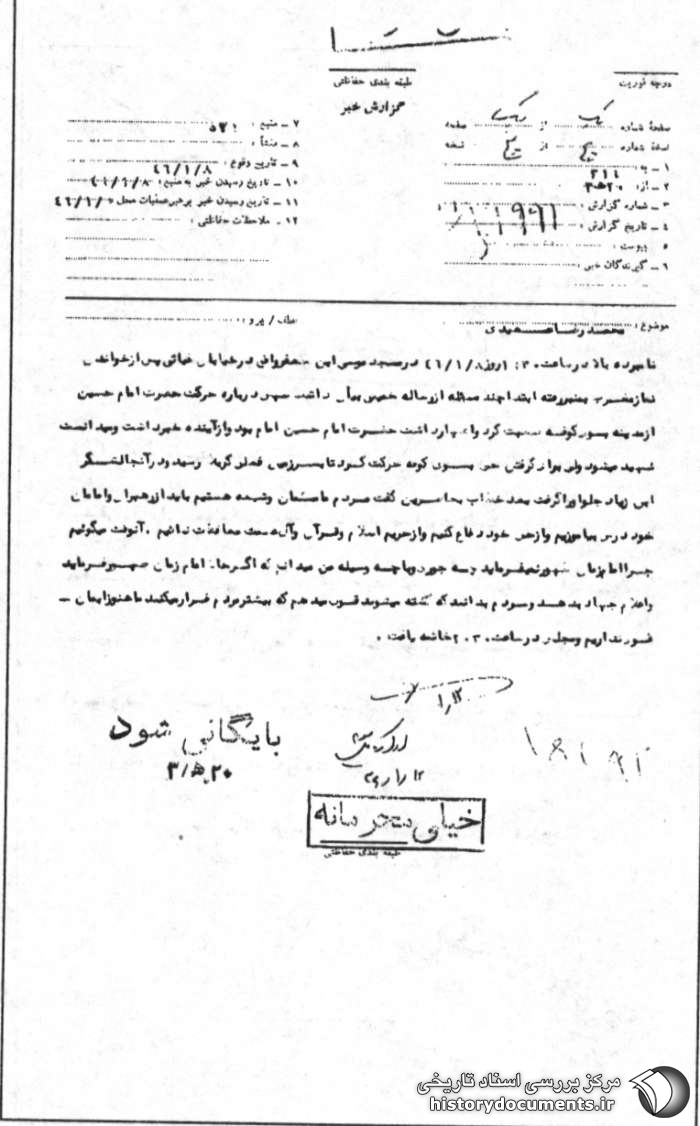 طبقه بندی حفاظتی
گزارش خبر
درجه فوریت
صفحه شماره یک از یک صفحه
نسخه شماره پنج از پنج نسخه
۱ ـ به: ۳۱۶
۲ ـ از: ۲۰ ه ۳
۳ ـ شماره گزارش:
۴ ـ تاریخ گزارش:
۵ پیوست:
۶ ـ گیرندگان خبر:
۷ ـ منبع:
۸ ـ منشأ:
۹ ـ تاریخ وقوع: ۴۶/۱/۸
۱۰ ـ تاریخ رسیدن خبر به منبع: ۴۶/۱/۸
۱۱ ـ تاریخ رسیدن خبر برهبر عملیات محل:
۱۲ ـ ملاحظات حفاظتی:
موضوع: محمدرضا سعیدی
عطف / پیرو:
نامبرده بالا در ساعت ۱۰:۳۰ روز ۴۶/۱/۸ در مسجد موسی ابن جعفر واقع در خیابان غیاثی پس از خواندن
نماز مغرب بمنبر رفته ابتدا چند مسئله از رساله خمینی بیان داشت سپس درباره حرکت حضرت امام حسین
از مدینه بسوی کوفه صحبت کرد و اظهار داشت حضرت امام حسین امام بود و از آینده خبر داشت و میدانست
شهید میشود ولی برای گرفتن حق بسوی کوفه حرکت کرد تا بسرزمین فعلی کربلا رسید و در آنجا لشگر
ابن زیاد جلو او را گرفت بعد خطاب بحاضرین گفت مردم ما مسلمان و شیعه هستیم باید از رهبران و امامان
خود درس بیاموزیم و از حق خود دفاع کنیم و از حریم اسلام و قرآن و آل عصمت محافظت نمائیم . آنوقت میگوئیم
چرا امام زمان ظهور نمیفرماید و به چه جور و با چه وسیله من میدانم که اگر حالا امام زمان ظهور فرماید
و اعلام جهاد بدهد و مردم بدانند که کشته میشوند قول میدهم که بیشتر مردم فرار میکنند ما هنوز ایمان ـ
قوی نداریم و مجلس در ساعت ۲۰:۳۰ خاتمه یافت .
۱/۱۲
بایگانی شود
۲۰ ه ۳
خیلی محرمانه
طبقه بندی حفاظتی
مرکز بررسی اسناد تاریخی
historydocuments.ir